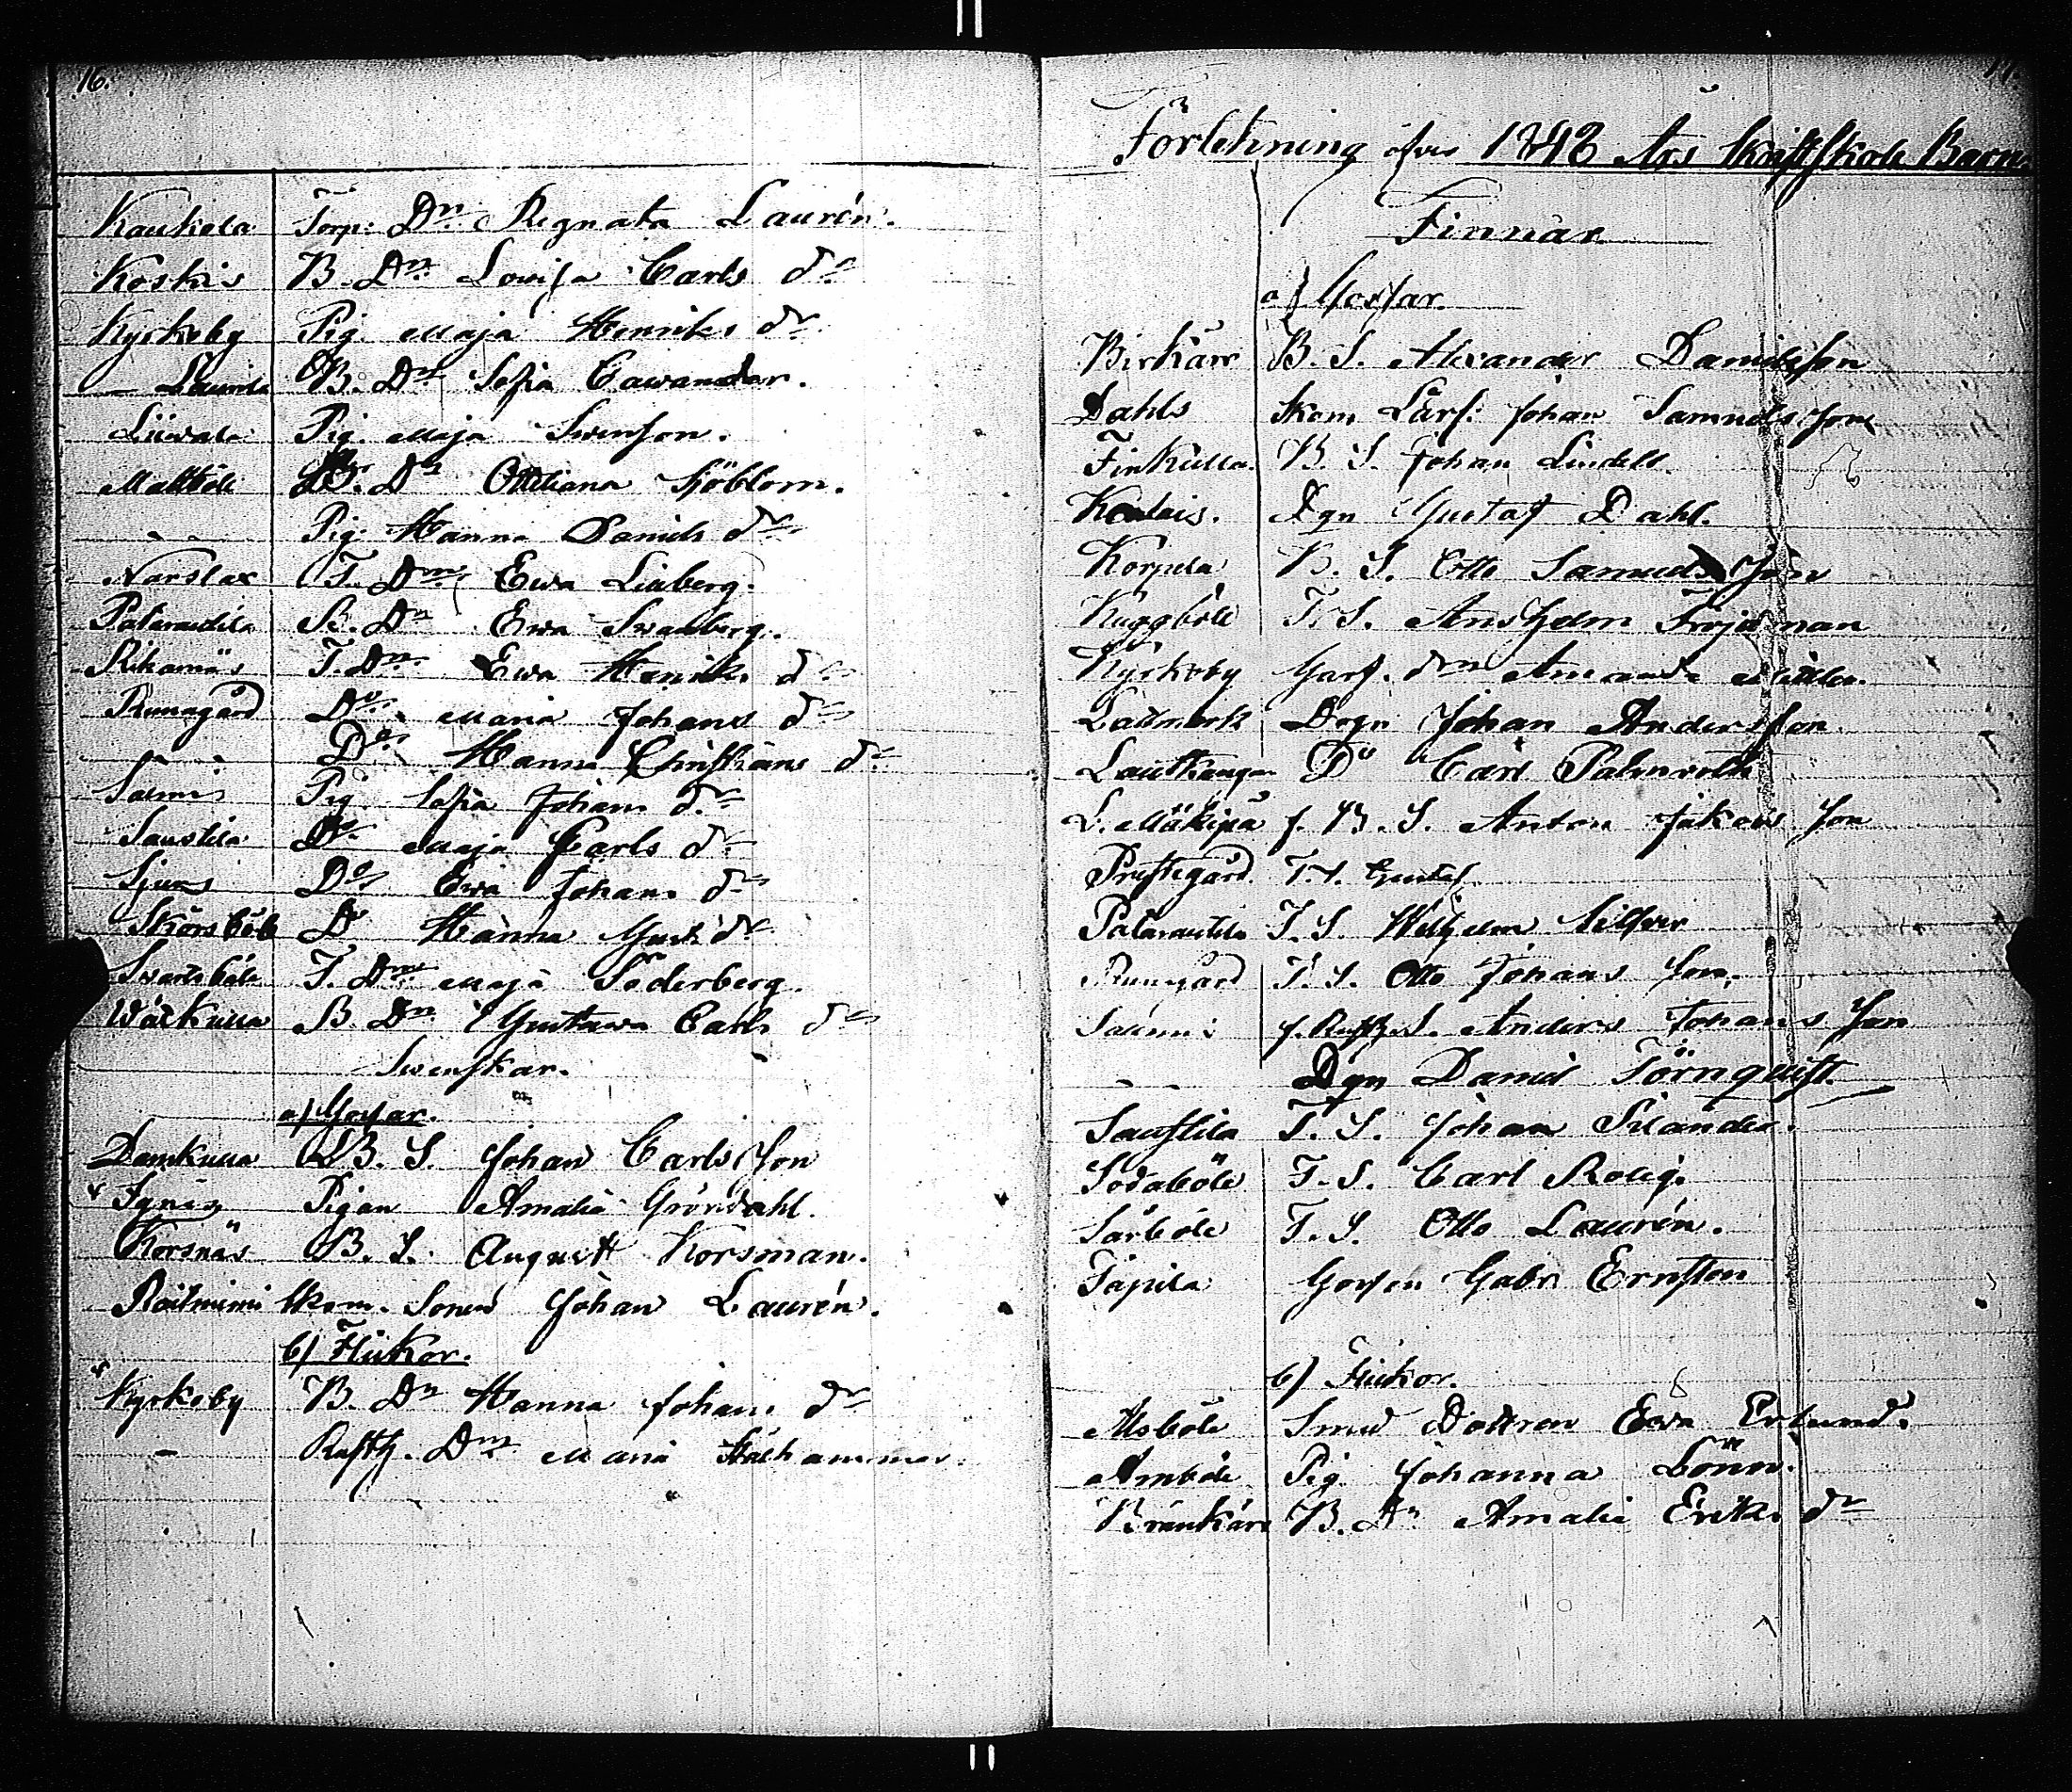 16.
Kaukola Torp: Dr. Regnata Laurén.
Koskis B. Dr. Lovisa Carls dr
Kyrkoby Pig. Maja Henriks dr
— Laurila B. Dr. Sofia Cawander.
Liuvala Pig. Maja Svenson.
Mattböle B. Dr Ottiliana Sjöblom.
- - Pig. Hanna Daniels dr
Norslax T. Dr. Ewa Linberg.
Patarautila B. Dr Ewa Swanberg.
Rikamäs T. Dr. Ewa Henriks dr
Runagård Do Maria Johans dr
- - Do Hanna Christians dr
Salmis Pig. Sofia Johans dr
Saustila Do Maja Carls dr
Sjuas Do Ewa Johans dr
Skörsböle Do Hanna Gust. dr
Swartsböle T. Dr Maja Söderberg.
Wäckulla B. Dr Gustawa Carls dr
Swenskar.
a) Gossar.
Damkulla B. S. Johan Carlsson
Pigan Amalia Gröndahl.
Korsnäs B. S. August Korsman.
Skom. Sonen Johan Laurén.
b) Flickor.
Kyrkoby B. Dr Hanna Johans dr
— Rusth. Dr Maria Stålhammar.
17.
Förtekning öfver 1848 Års Skriftskole Barn.
Finnar
a) Gossar.
Birkärr B. S. Alexander Danielsson
Dahls Skom Lärl: Johan Samuelsson
Finkulla B. S. Johan Lindell.
Dgn Gustaf Dahl.
Korpela B. S. Otto Samuelsson
Kuggböle T. S. Anshelm Frojdman
Kyrkoby Garf. drn Amanda Miller.
Lallmark Drgn Johan Andersson
Lautkangas Do Carl Palmroth
L. Mäkipä f. B. S. Anton Jakobsson
Prestegård. T. S. Gustaf
Patarautila T. S. Wilhelm Silfver
Runagård T. S. Otto Johansson.
Salmis f. Rusth. S. Anders Johansson
- - Dgn Daniel Törnquist.
Saustila T. S. Johan Silander.
Södaböle T. S. Carl Rolig.
Särböle T. S. Otto Laurén.
Tapila Gossen Gabr Ernston
b) Flickor.
Alsböle Smed Dottren Ewa Erlund.
Amböle Pig. Johanna Lönn.
Bränkärr B. Dr Amalia Eriks dr